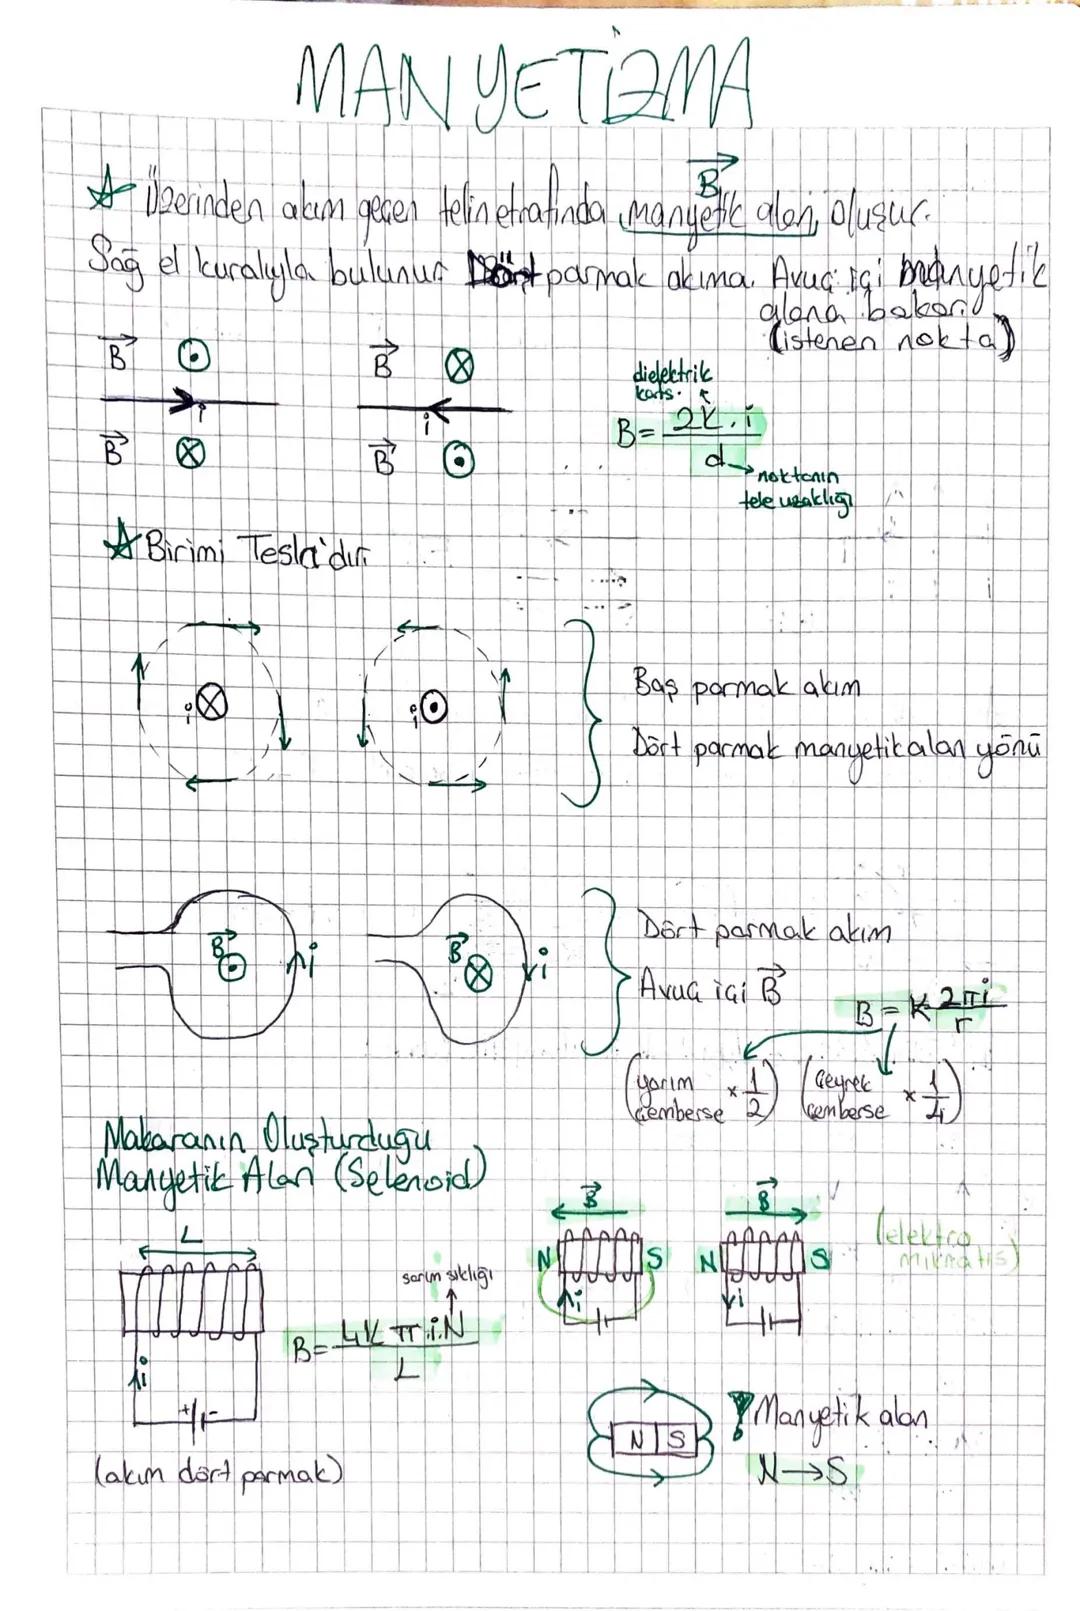 MANYETİZMA
B
☆ Üzerinden akım geçen telin etrafında manyetik alan oluşur.
Sağ el kuralıyla bulunur Dört parmak akıma. Avuç içi manyetik
alana bakar.
(istenen nokta)
B ⊙ B ⊗
i i
B ⊗ B ⊙
dielektrik
kats.
B = 2K.i / d
noktanın
tele uzaklığı
☆ Birimi Tesla'dır
i ⊗ i ⊙
Baş parmak akım
Dört parmak manyetik alan yönü
B ⊙ i B ⊗ i
Dört parmak akım
Avuç içi B
B = K 2πi / r
(yarım çemberse × 1/2) (çeyrek çemberse × 1/4)
Makaranın Oluşturduğu
Manyetik Alan (Selenoid)
L
i
+ -
sarım sıklığı
B = 4K π.i.N / L
(akım dört parmak)
B B
N S N S
i i
(elektro
mıknatıs)
N S
! Manyetik alan
N → S